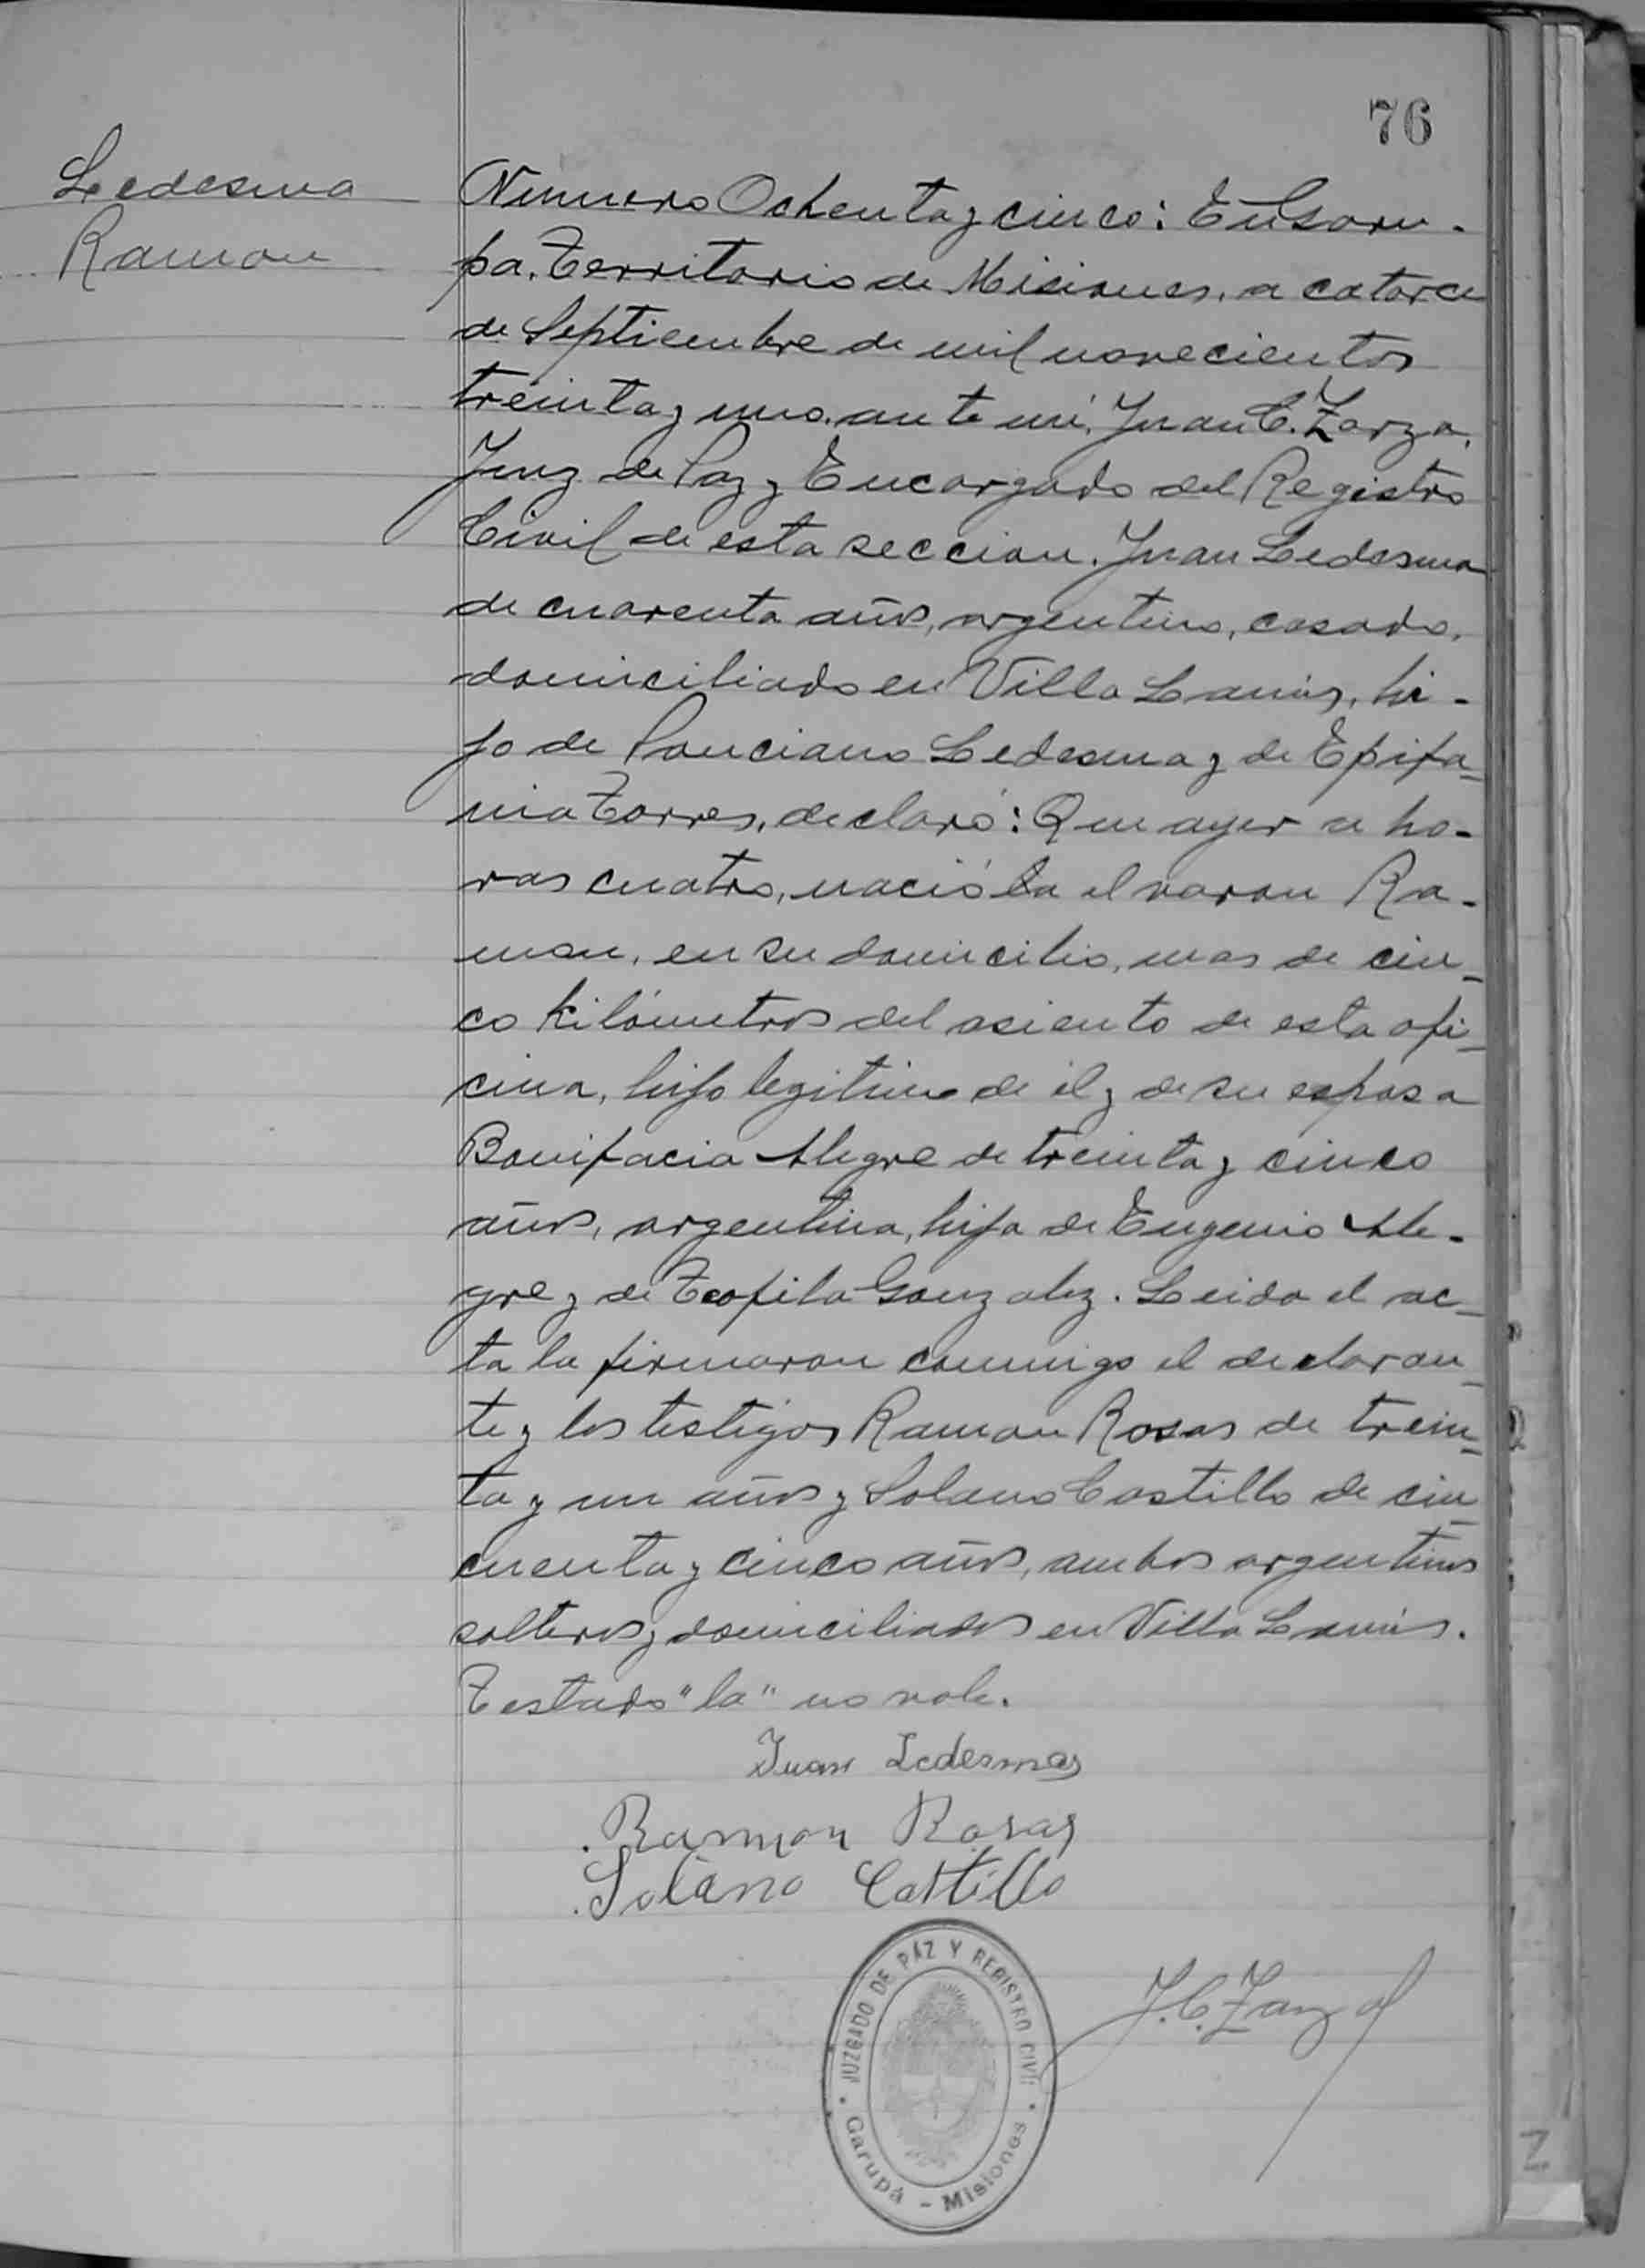 76
Ledesma
Ramon
Número Ochenta y cinco: En Garu-
pa, Territorio de Misiones, a catorce
de Septiembre de mil novecientos
treinta y uno, ante mí, Juan C. Zarza,
Juez de Paz y Encargado del Registro
Civil de esta seccion, Juan Ledesma
de cuarenta años, argentino, casado,
domiciliado en Villa Lanús, hi-
jo de Ponciano Ledesma y de Epifa-
nia Torres, declaró: Que ayer a ho-
ras cuatro, nació la el varon Ra-
mon, en su domicilio, mas de cin-
co kilómetros del asiento de esta ofi-
cina, hijo legitimo de él y de su esposa
Bonifacia Alegre de treinta y cinco
años, argentina, hija de Eugenio Ale-
gre y de Teofila Gonzalez. Leida el ac-
ta la firmaron conmigo el declaran-
te y los testigos Ramon Rosas de trein-
ta y un años y Solano Castillo de cin-
cuenta y cinco años, ambos argentinos
solteros y domiciliados en Villa Lanús.
Testado "la" no vale.
Juan Ledesma
Ramon Rosas
Solano Castillo
J. C. Zarza
JUZGADO DE PAZ Y REGISTRO CIVIL
Garupá - Misiones
Z